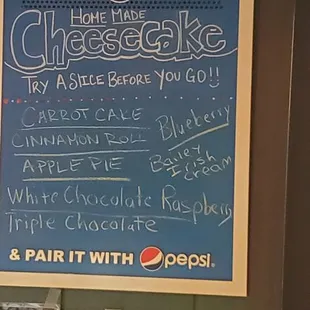 HOME MADE
Cheesecake
TRY A SLICE BEFORE YOU GO!!
CARROT CAKE
CINNAMON ROLL
APPLE PIE
Blueberry
Bailey Irish
Cream
White Chocolate Raspberry
Triple Chocolate
& PAIR IT WITH pepsi.